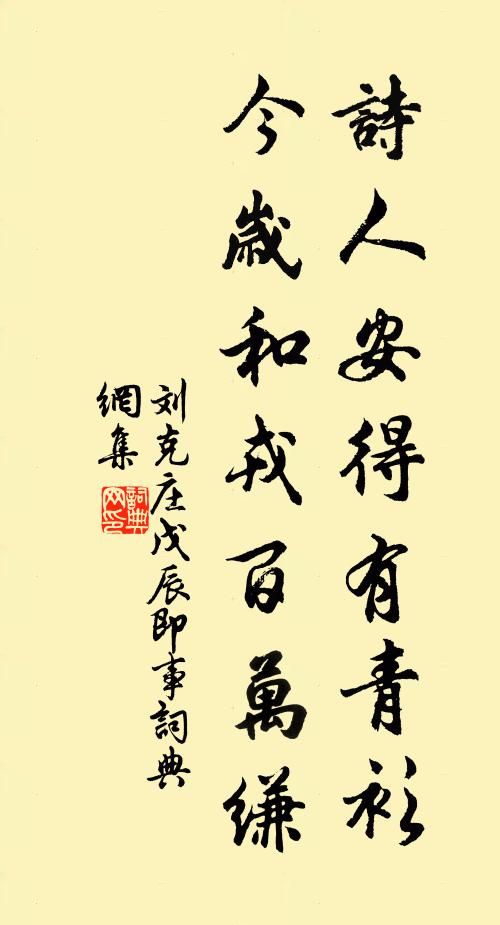 詩人安得有青衫
今歲和戎百萬縑
刘克庄戊辰即事詞典
網集
詞典
网印